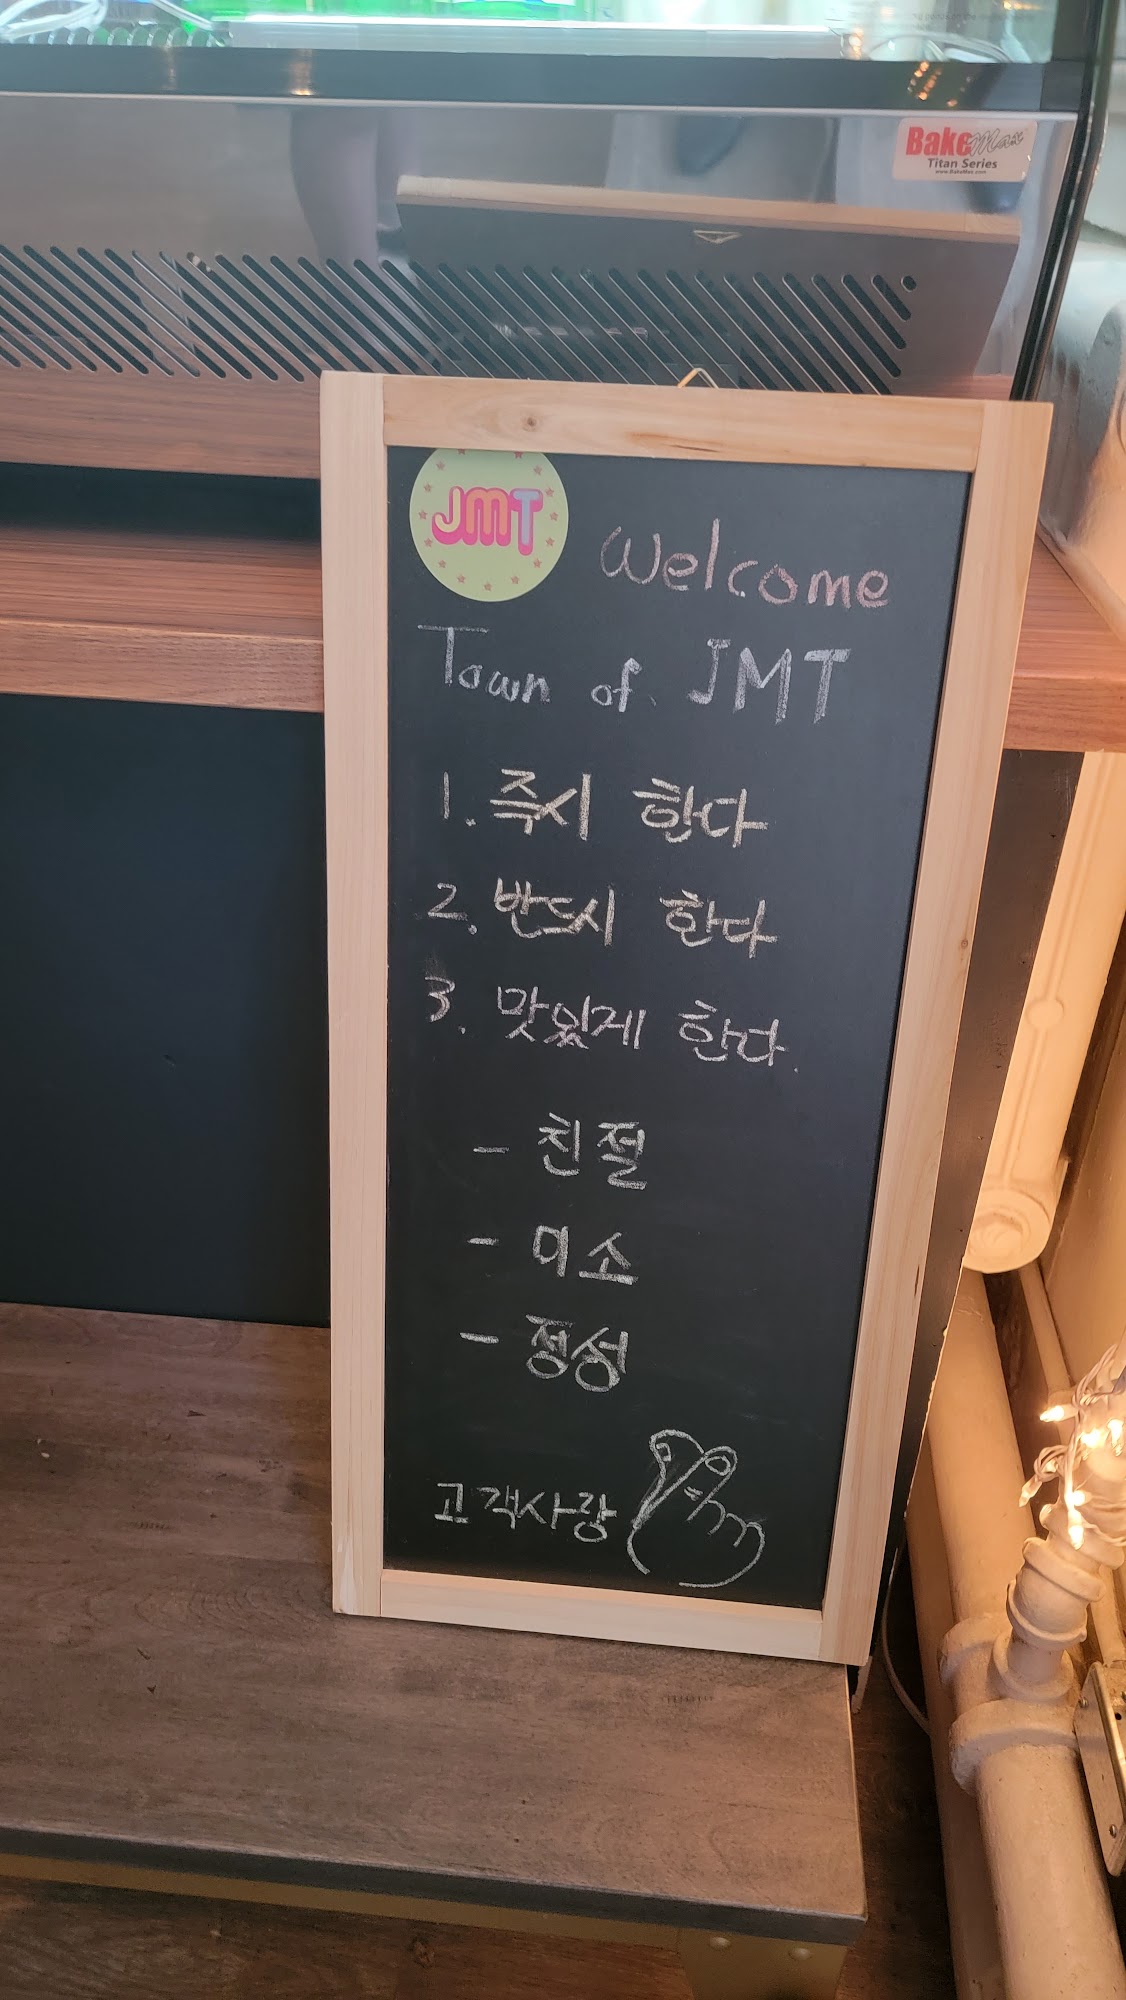 BakeMax
Titan Series
www.BakeMax.com
JMT
Welcome
Town of JMT
1. 즉시 한다
2. 반드시 한다
3. 맛있게 한다.
- 친절
- 미소
- 정성
고객사랑